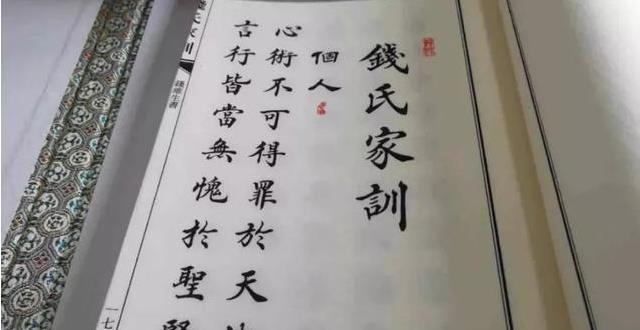 錢氏家訓
個人
心術不可得罪於天
言行皆當無愧於聖賢
錢氏家訓
一七